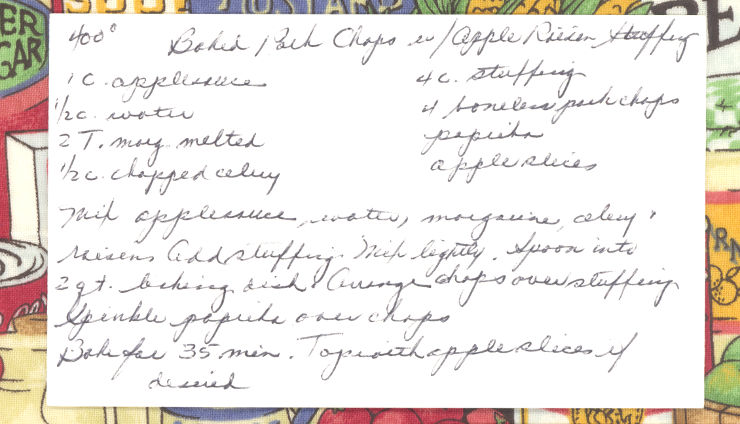 400° Baked Pork Chops w/ Apple Raisin Stuffing
1 c. applesauce
1/2 c. water
2 T. marg. melted
1/2 c. chopped celery
4 c. stuffing
4 boneless pork chops
paprika
apple slices
Mix applesauce, water, margarine, celery &
raisens Add stuffing. Mix lightly. Spoon into
2 qt. baking dish. Arrange chops over stuffing
Sprinkle paprika over chops
Bake for 35 min. Top with apple slices if
desired